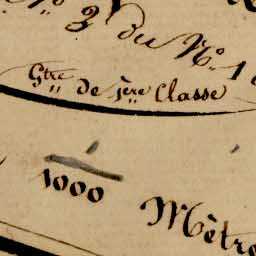 N° 3 du N° 1
Gtre de 1ère Classe
1
1000 Mètre